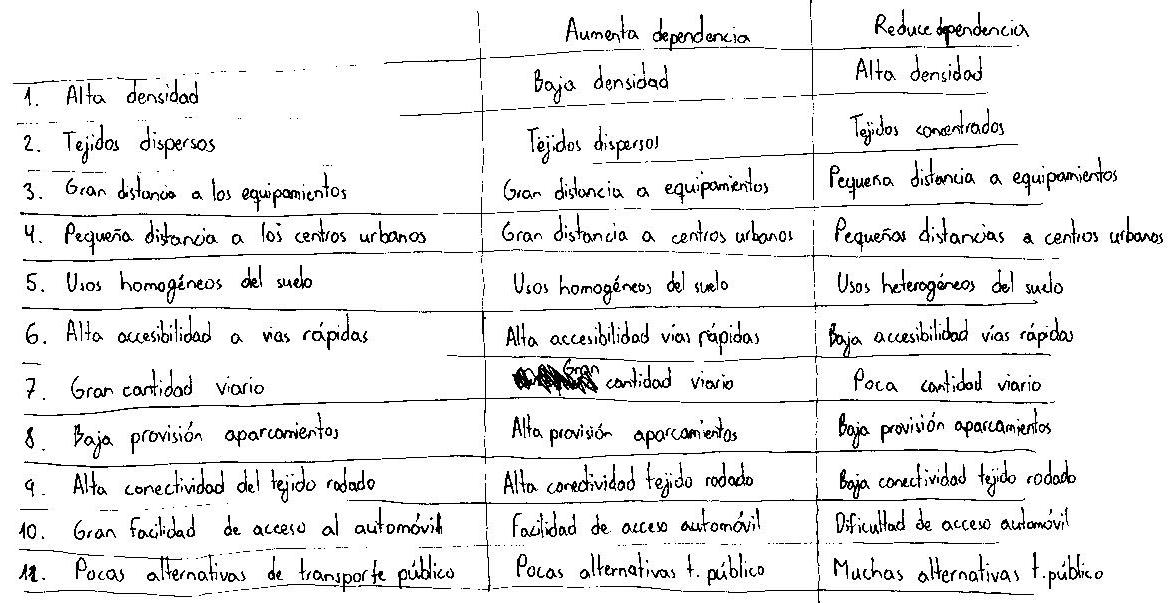 Aumenta dependencia Reduce dependencia
1. Alta densidad Baja densidad Alta densidad
2. Tejidos dispersos Tejidos dispersos Tejidos concentrados
3. Gran distancia a los equipamientos Gran distancia a equipamientos Pequeña distancia a equipamientos
4. Pequeña distancia a los centros urbanos Gran distancia a centros urbanos Pequeñas distancias a centros urbanos
5. Usos homogéneos del suelo Usos homogéneos del suelo Usos heterogéneos del suelo
6. Alta accesibilidad a vías rápidas Alta accesibilidad vías rápidas Baja accesibilidad vías rápidas
7. Gran cantidad viario Gran cantidad viario Poca cantidad viario
8. Baja provisión aparcamientos Alta provisión aparcamientos Baja provisión aparcamientos
9. Alta conectividad del tejido rodado Alta conectividad tejido rodado Baja conectividad tejido rodado
10. Gran facilidad de acceso al automóvil Facilidad de acceso automóvil Dificultad de acceso automóvil
11. Pocas alternativas de transporte público Pocas alternativas t. público Muchas alternativas t. público